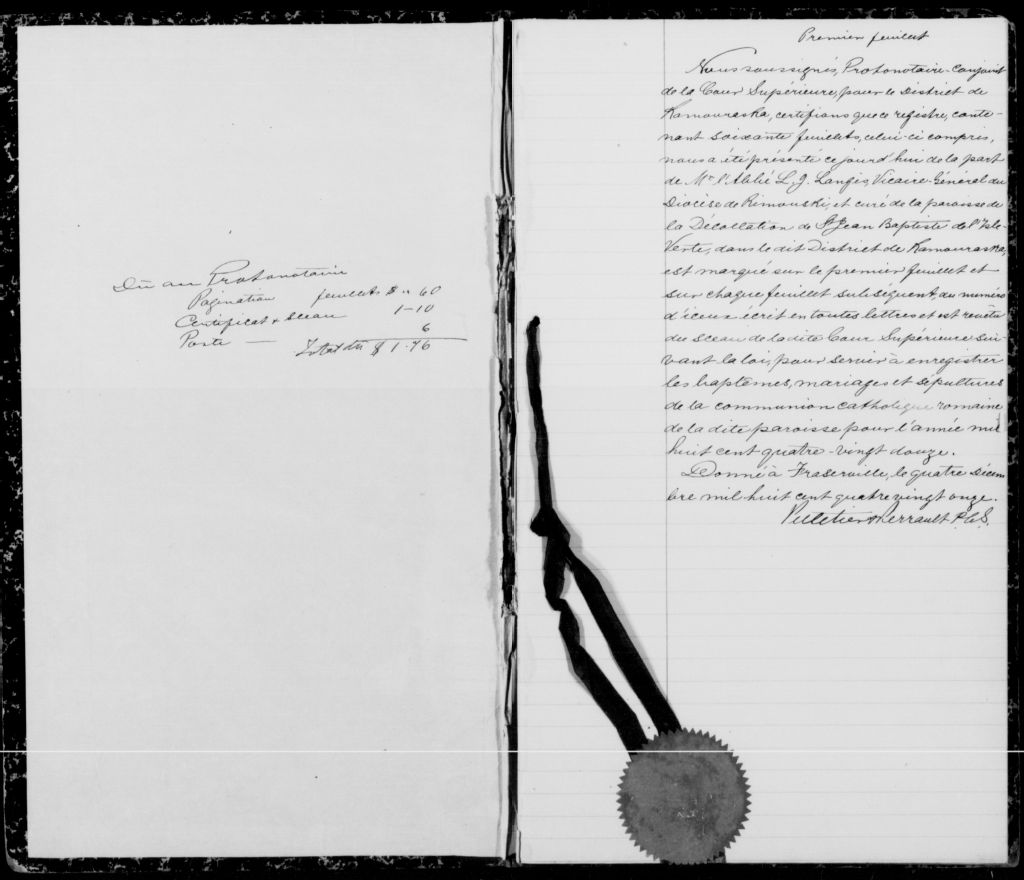 Dû au Protonotaire
Pagination feuillets $ " 60
Certificat & sceau 1-10
Poste — 6
Total dû $ 1.76
Premier feuillet
Nous soussignés, Protonotaire-conjoint
de la Cour Supérieure, pour le District de
Kamouraska, certifions que ce registre, conte-
nant soixante feuillets, celui-ci compris,
nous a été présenté ce jourd'hui de la part
de Mr l'Abbé L. J. Langis, Vicaire-Général du
Diocèse de Rimouski, et curé de la paroisse de
la Décollation de St Jean Baptiste de l'Isle-
Verte, dans le dit District de Kamouraska,
est marqué sur le premier feuillet et
sur chaque feuillet subséquent, du numéro
d'iceux écrit en toutes lettres et est revêtu
du sceau de la dite Cour Supérieure sui-
vant la loi, pour servir à enregistrer
les baptêmes, mariages et sépultures
de la communion catholique romaine
de la dite paroisse pour l'année mil
huit cent quatre-vingt douze.
Donné à Fraserville, le quatre Décem
bre mil-huit cent quatre vingt onze.
Pelletier & Perrault P.C.S.